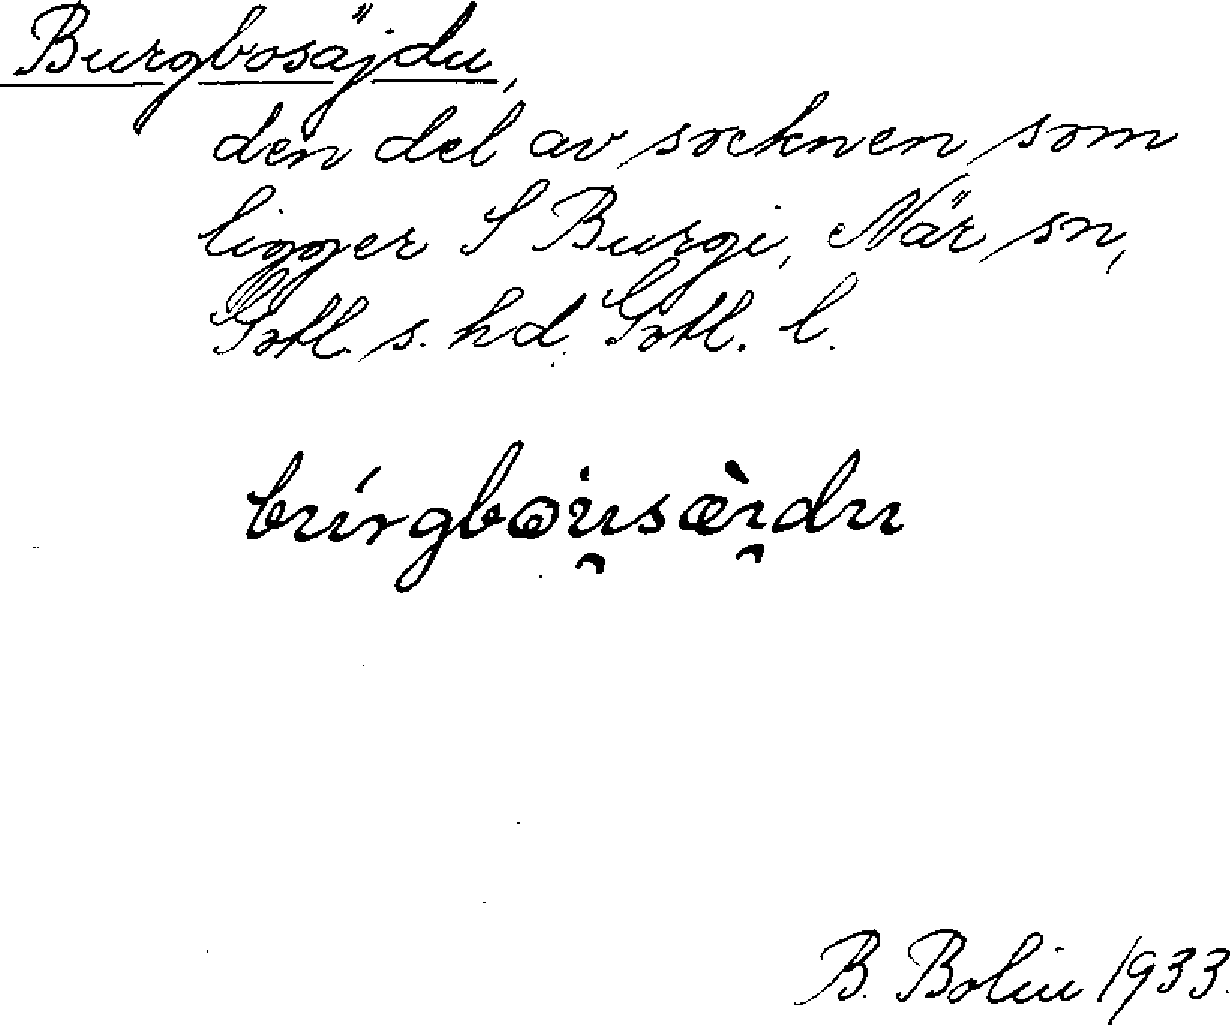 Burgbosäjdu,
den del av socknen som
ligger S Burgi, När sn,
Gotl. s. hd. Gotl. l.
B. Bolin 1933.